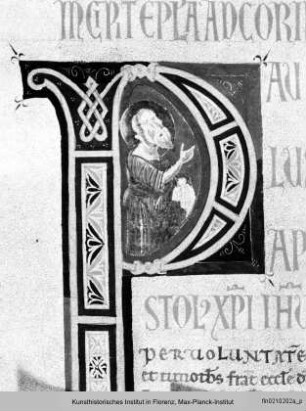 INCIPIT EPLA AD CORIN
P AU
LUS
AP
STOL' XPI IHU
PER UOLUNTATE
et timoth's frat' eccle d
Kunsthistorisches Institut in Florenz, Max-Planck-Institut
fln0210202a_p